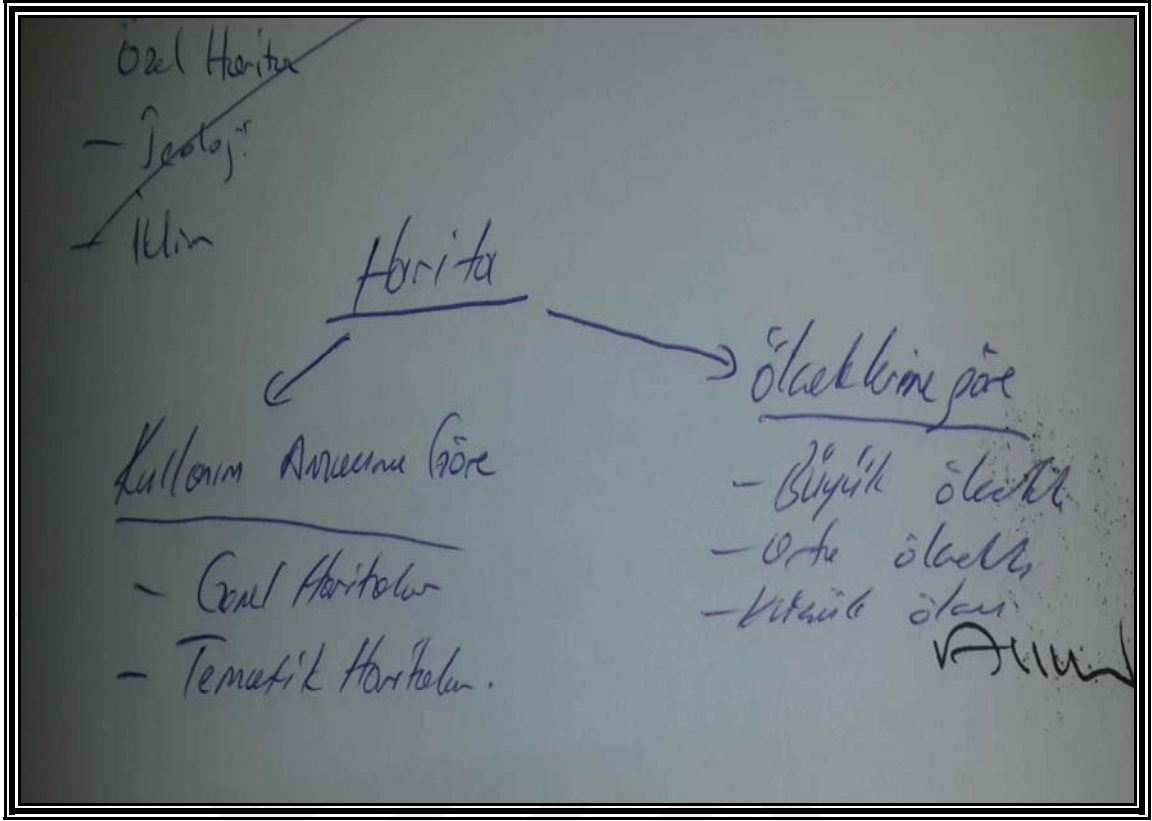 Özel Harita
- Jeoloji
- İklim
Harita
Kullanım Amacına Göre
- Genel Haritalar
- Tematik Haritalar.
ölçeklerine göre
- Büyük ölçekli
- Orta ölçekli
- Küçük